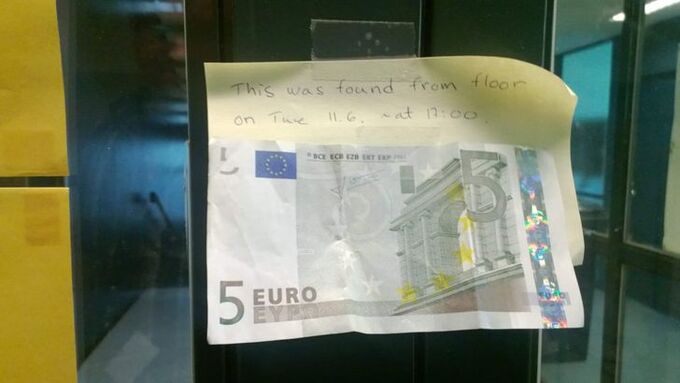 This was found from floor
on Tue 11.6. ~at 17:00.
BCE ECB EZB EKT EKP 2002
5
5
5 EURO
ΕΥΡΩ